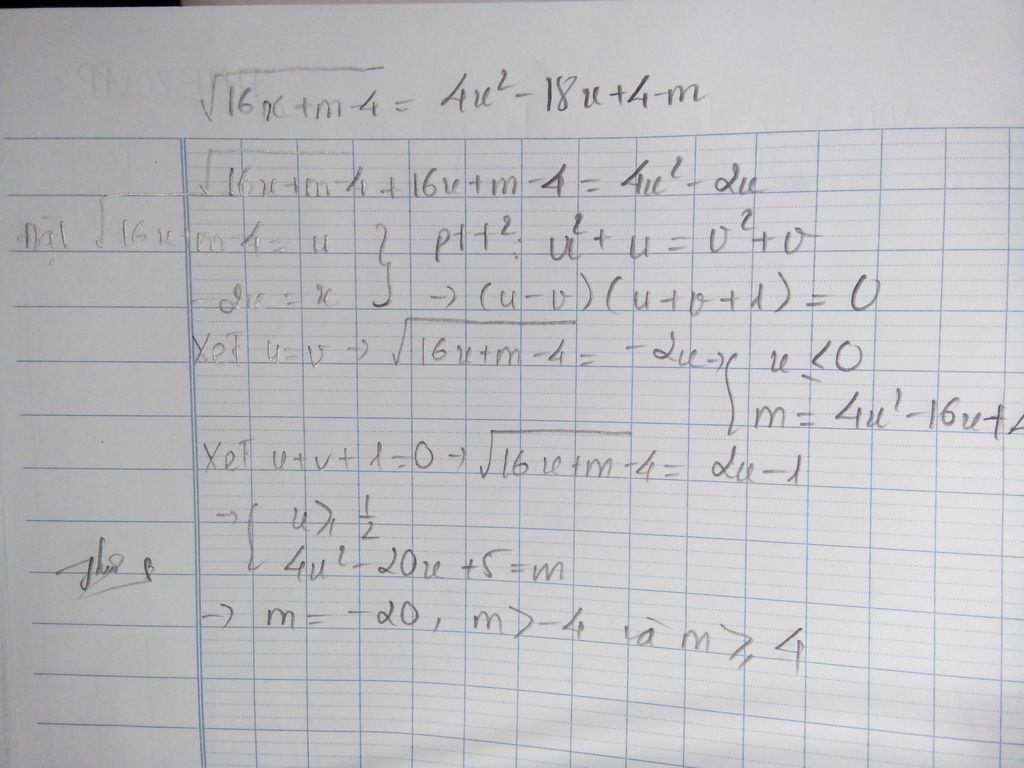 √16x+m-4 = 4x²-18x+4-m
√16x+m-4 + 16x+m-4 = 4x²-2x
Đặt √16x+m-4 = u } ptt²: u²+u = v²+v
-2x = v } → (u-v)(u+v+1) = 0
Xét u=v → √16x+m-4 = -2x → { x ≤ 0
m = 4x²-16x+4
Xét u+v+1=0 → √16x+m-4 = 2x-1
→ { x ≥ 1/2
4x²-20x+5=m
→ m = -20, m > -4 m ≥ 4